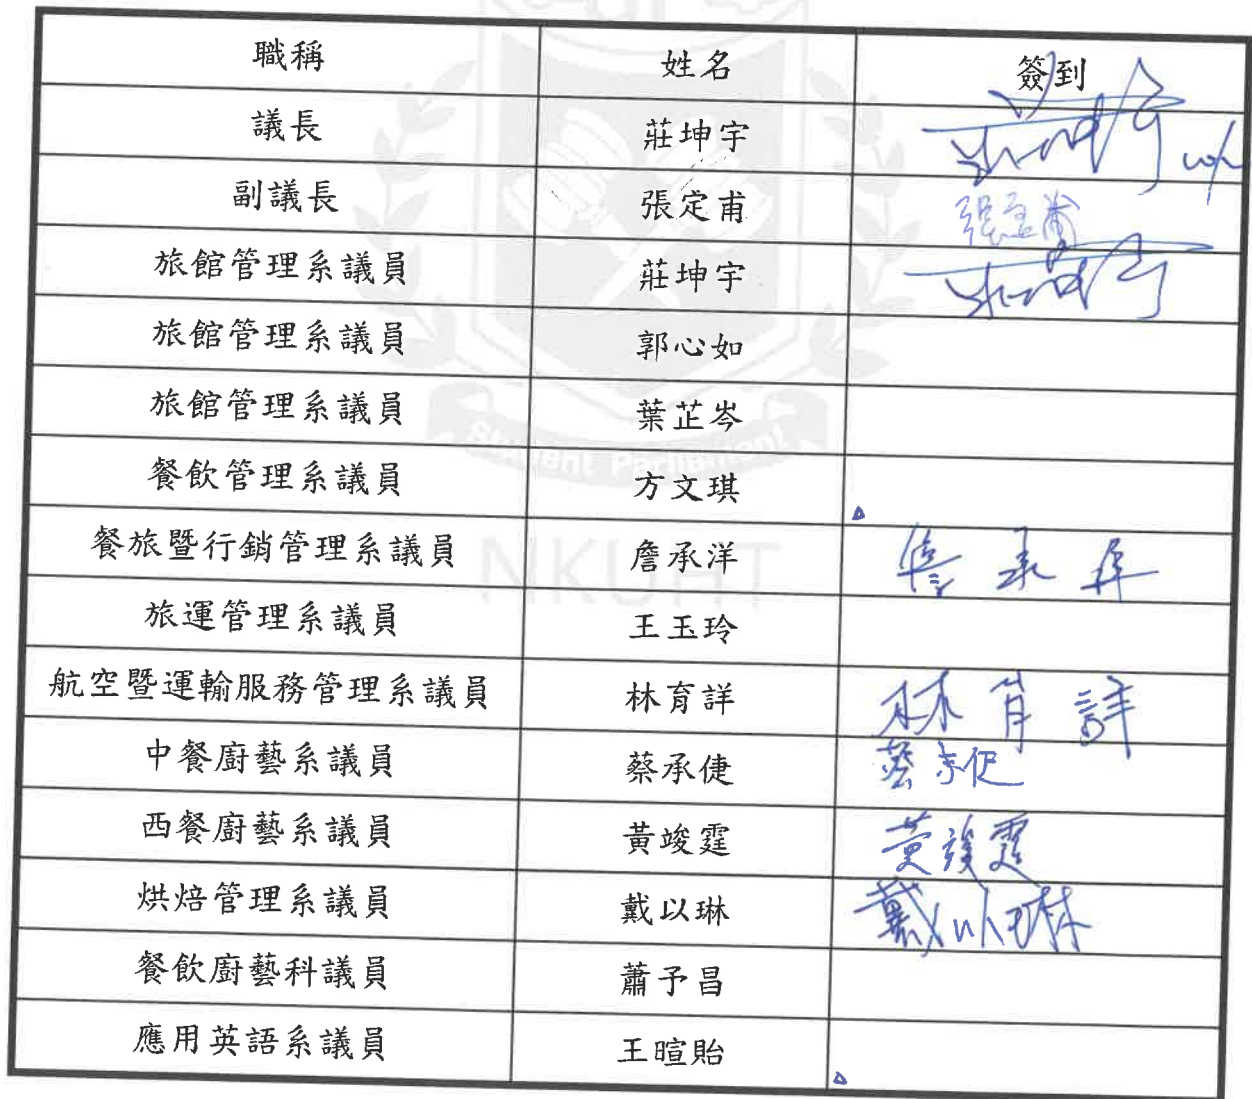 職稱 姓名 簽到
議長 莊坤宇
副議長 張定甫 張定甫
旅館管理系議員 莊坤宇
旅館管理系議員 郭心如
旅館管理系議員 葉芷岑
餐飲管理系議員 方文琪 △
餐旅暨行銷管理系議員 詹承洋 詹承洋
旅運管理系議員 王玉玲
航空暨運輸服務管理系議員 林育詳 林育詳
中餐廚藝系議員 蔡承倢 蔡承倢
西餐廚藝系議員 黃竣霆 黃竣霆
烘焙管理系議員 戴以琳 戴以琳
餐飲廚藝科議員 蕭予昌
應用英語系議員 王暄貽 △
Student Parliament
NKUHT